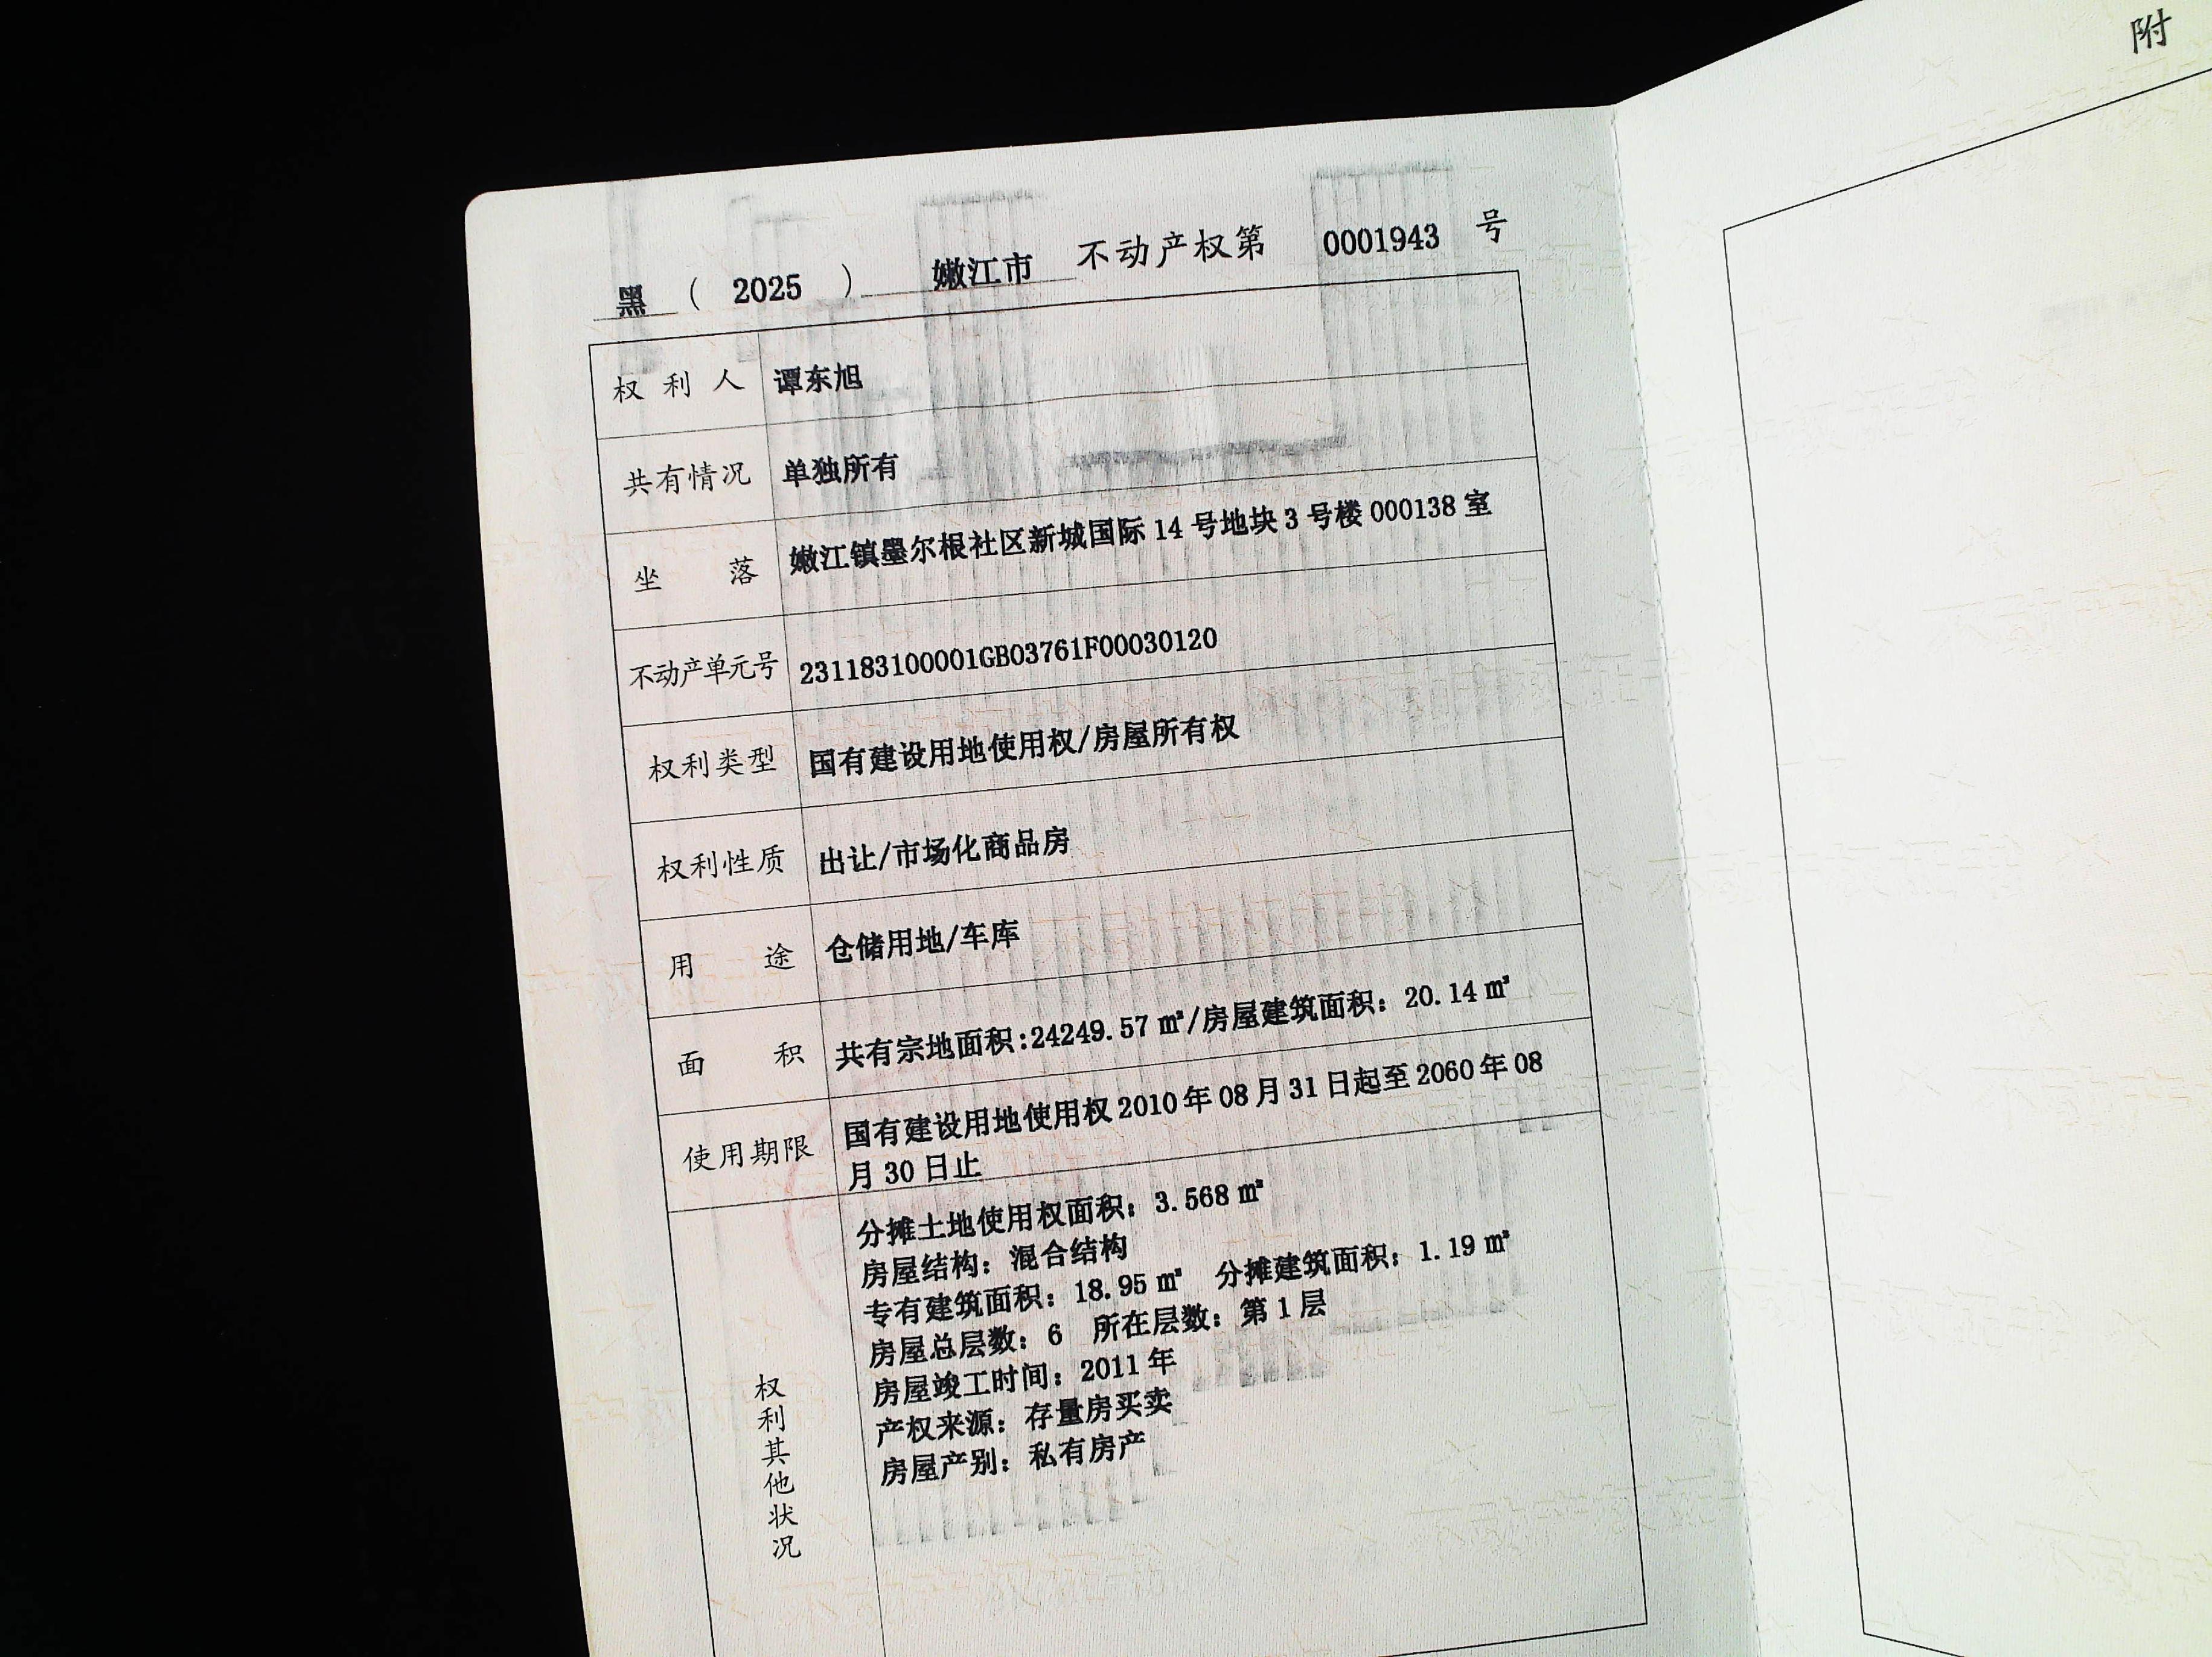 附
黑 ( 2025 ) 嫩江市 不动产权第 0001943 号
权利人 谭东旭
共有情况 单独所有
坐落 嫩江镇墨尔根社区新城国际 14 号地块 3 号楼 000138 室
不动产单元号 231183100001GB03761F00030120
权利类型 国有建设用地使用权/房屋所有权
权利性质 出让/市场化商品房
用途 仓储用地/车库
面积 共有宗地面积:24249.57 ㎡/房屋建筑面积: 20.14 ㎡
使用期限 国有建设用地使用权 2010 年 08 月 31 日起至 2060 年 08
月 30 日止
权利其他状况
分摊土地使用权面积: 3.568 ㎡
房屋结构: 混合结构
专有建筑面积: 18.95 ㎡ 分摊建筑面积: 1.19 ㎡
房屋总层数: 6 所在层数: 第 1 层
房屋竣工时间: 2011 年
产权来源: 存量房买卖
房屋产别: 私有房产